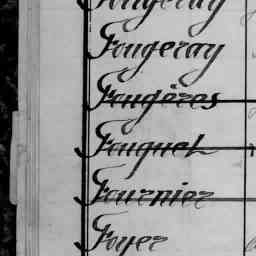 Fougeray
Fougeray
Fougères
Fouquet
Fournier
Foyer